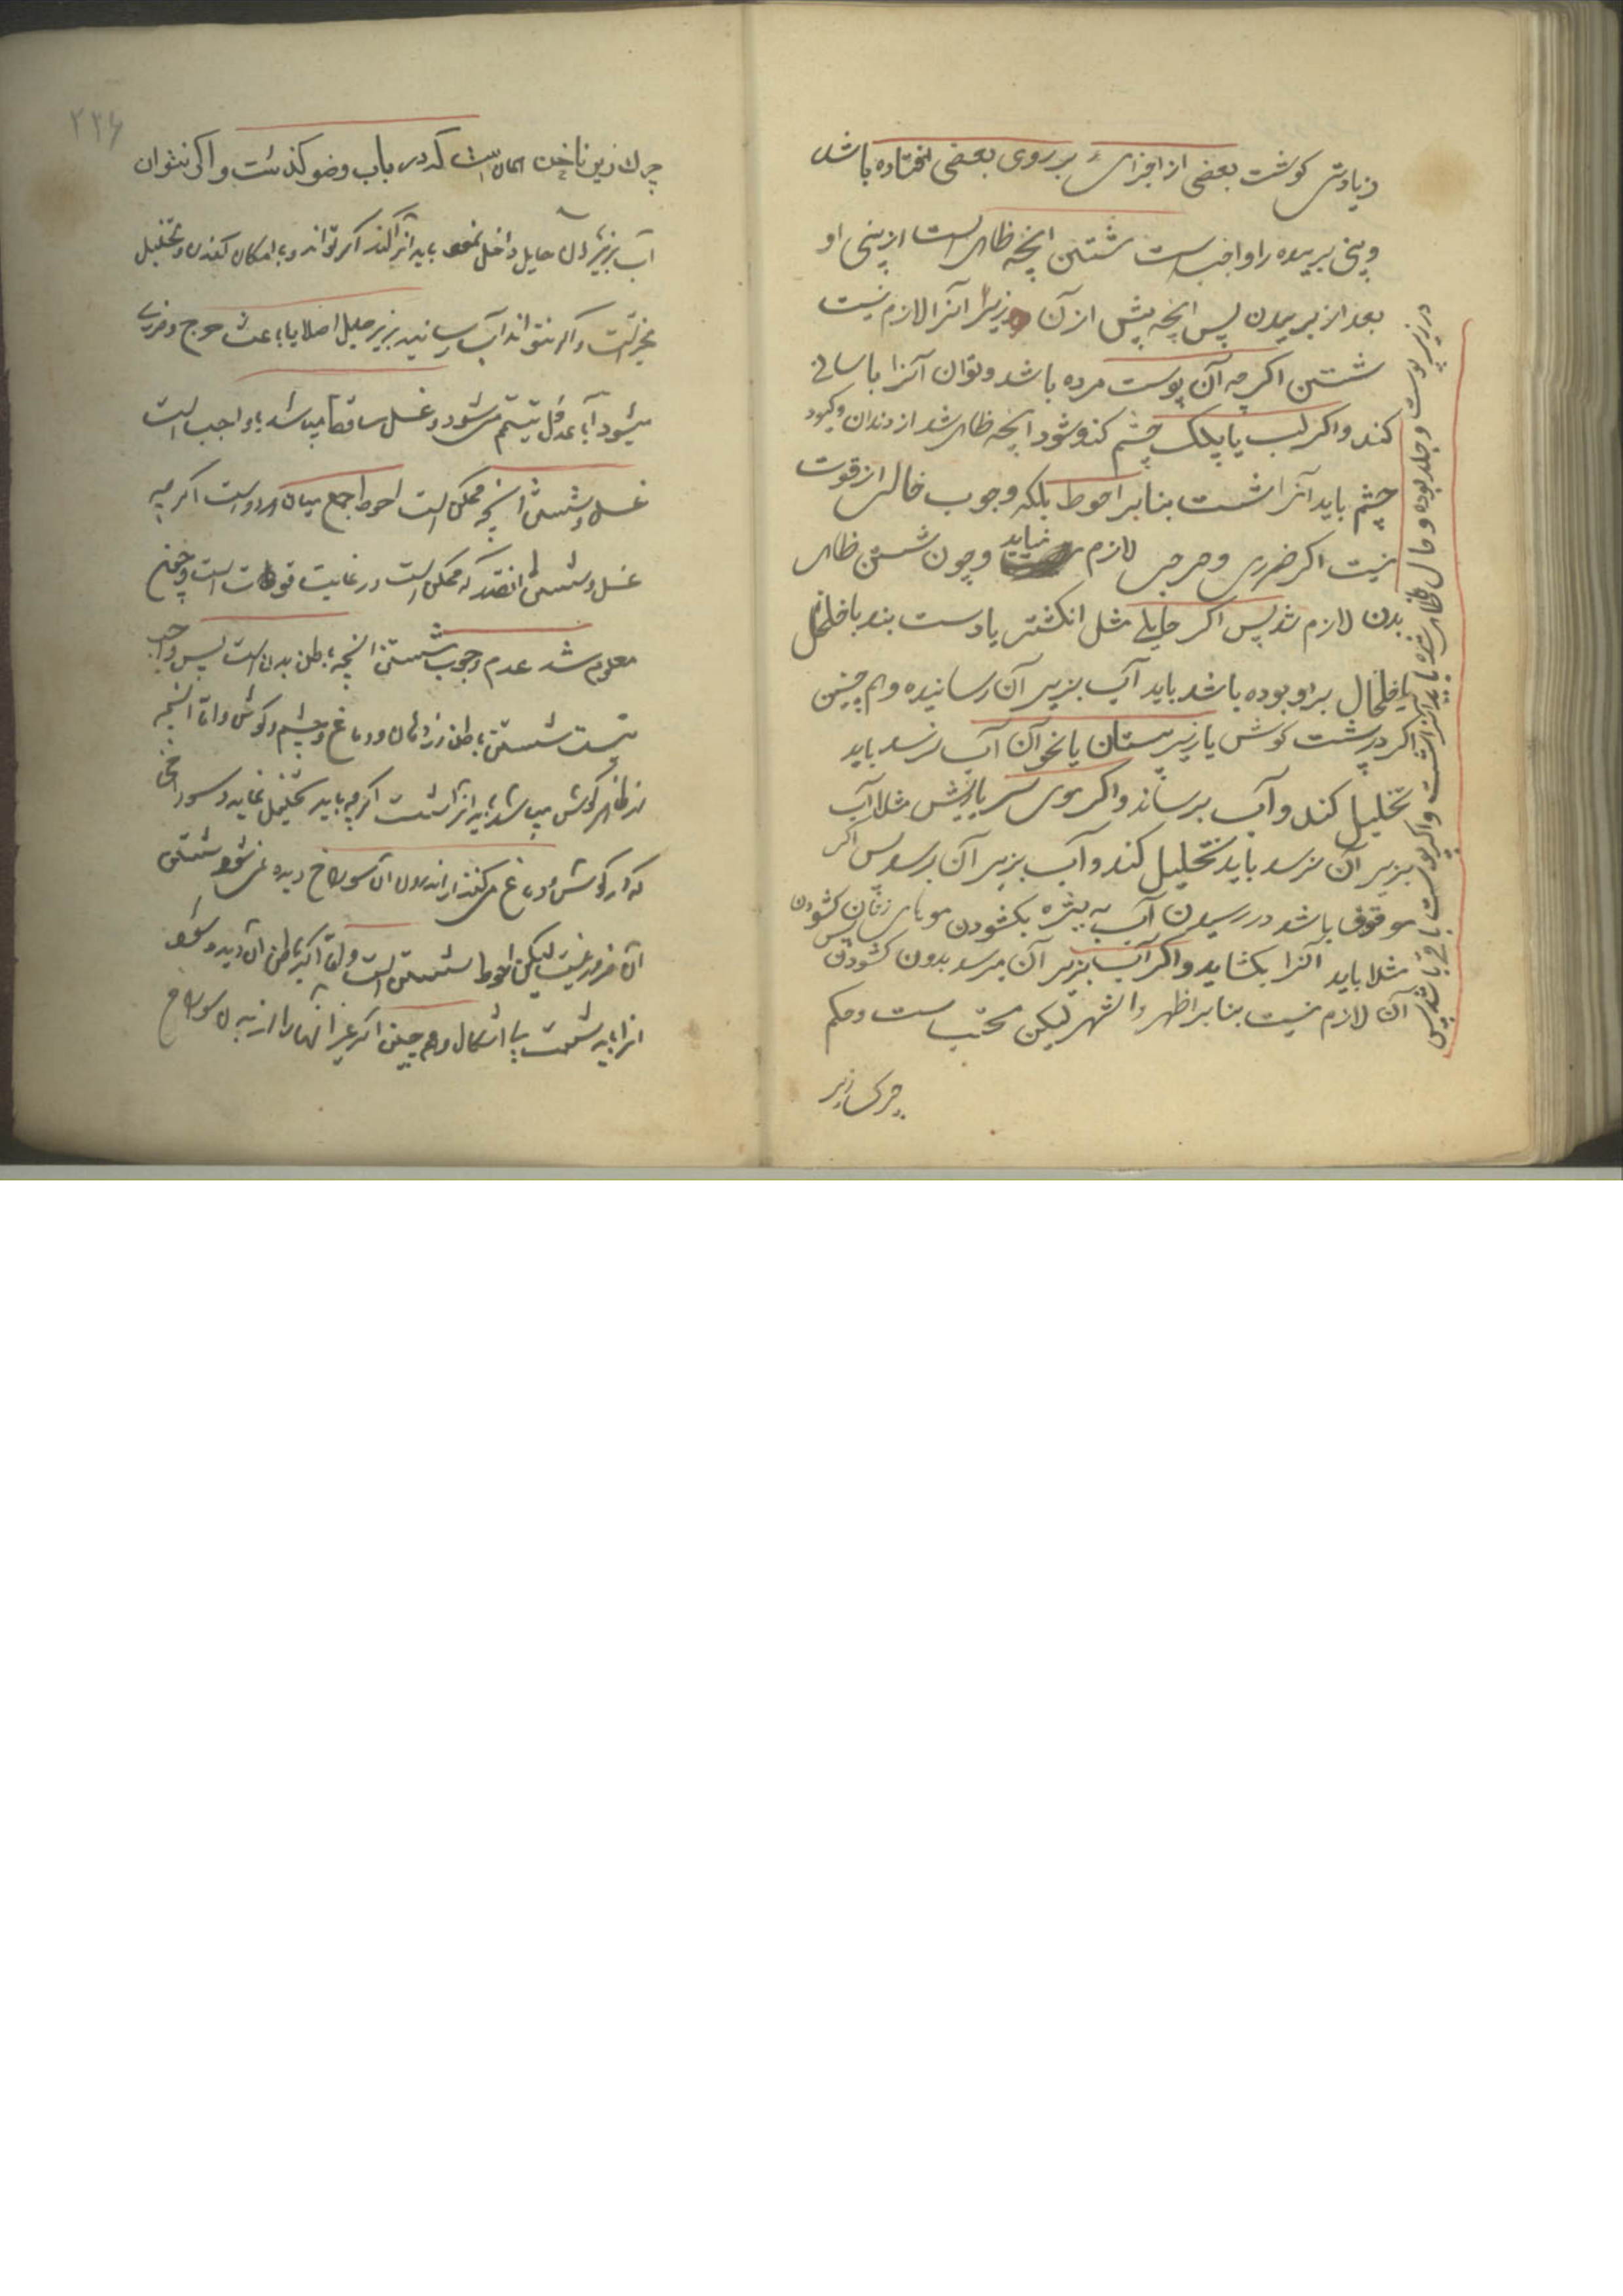 زیادتی کوشت بعضی از اجزای بر روی بعضی افتاده باشد
و بینی بریده را واجبست شستن انچه ظاهر است از بینی او
بعد از بریدن پس انچه پیش از آن در زیر انرا لازم نیست
شستن اکرچه آن پوست مرده باشد و توان آنرا باسانی
کند و اکر لب یا پلک چشم کنده شود انچه ظاهر شد از دندان و کبود
چشم باید آنرا شست بنابر احوط بلکه وجوب خالی از قوت
نیست اکر ضرری و حرجی لازم نیاید و چون شستن ظاهر
بدن لازم شد پس اکر حایلی مثل انکشتر یا دست بند یا خلخال
یا خلخال بر او بوده باشد باید آب بزیر آن رسانیده و هم چنین
اکر در پشت کوش یا زیر پستان یا نحو آن آب نرسد باید
تخلیل کند و آب برساند و اکر موی سر یا ریش مثلا آب
بزیر آن نرسد باید تخلیل کند و آب بزیر آن برساند پس اکر
موقوف باشد در رسیدن آب به بشره بکشودن موهای زنان کشودن
مثلا باید آنرا بکشاید و اکر آب بزیر آن میرسد بدون کشودن پس کشودن
آن لازم نیست بنابر اظهر و اشهر لیکن مستحب است و حکم
چرک زیر
در زیر پوست و جلد بوده و حال ظاهر شده باید آنرا شست و اکر پوست باقی باشد پس
۲۲۶
چرک زیر ناخن همان است که در باب وضو کذشت و اکر نتوان
آب بزیر آن حایل داخل نمود باید انرا کند اکر تواند و با امکان کندن و تخلیل
مخیر است و اکر نتواند آب رسانید بزیر حایل اصلا یا باعث حرج و ضرری
میشود آیا بدل تیمم میشود و غسل ساقط میباشد یا واجب است
غسل و شستن انچه ممکن است احوط جمع میان هر دو است اکرچه
غسل و شستن انقدر که ممکن است در غایت قوت است و چون
معلوم شد عدم وجوب شستن انچه باطن بدن است پس واجب
نیست شستن باطن دهان و دماغ و چشم و کوش و اما انچه
از ظاهر کوش میباشد باید انرا شست اکرچه باید تخلیل نماید و سوراخی
که در کوش و دماغ میکنند اکر اندرون آن سوراخ دیده نمی شود شستن
آن ضرور نیست لیکن احوط شستن است و اما اکر باطن آن دیده شود
انرا باید شست بی اشکال و هم چنین اکر غیر انها را از بدن سوراخ